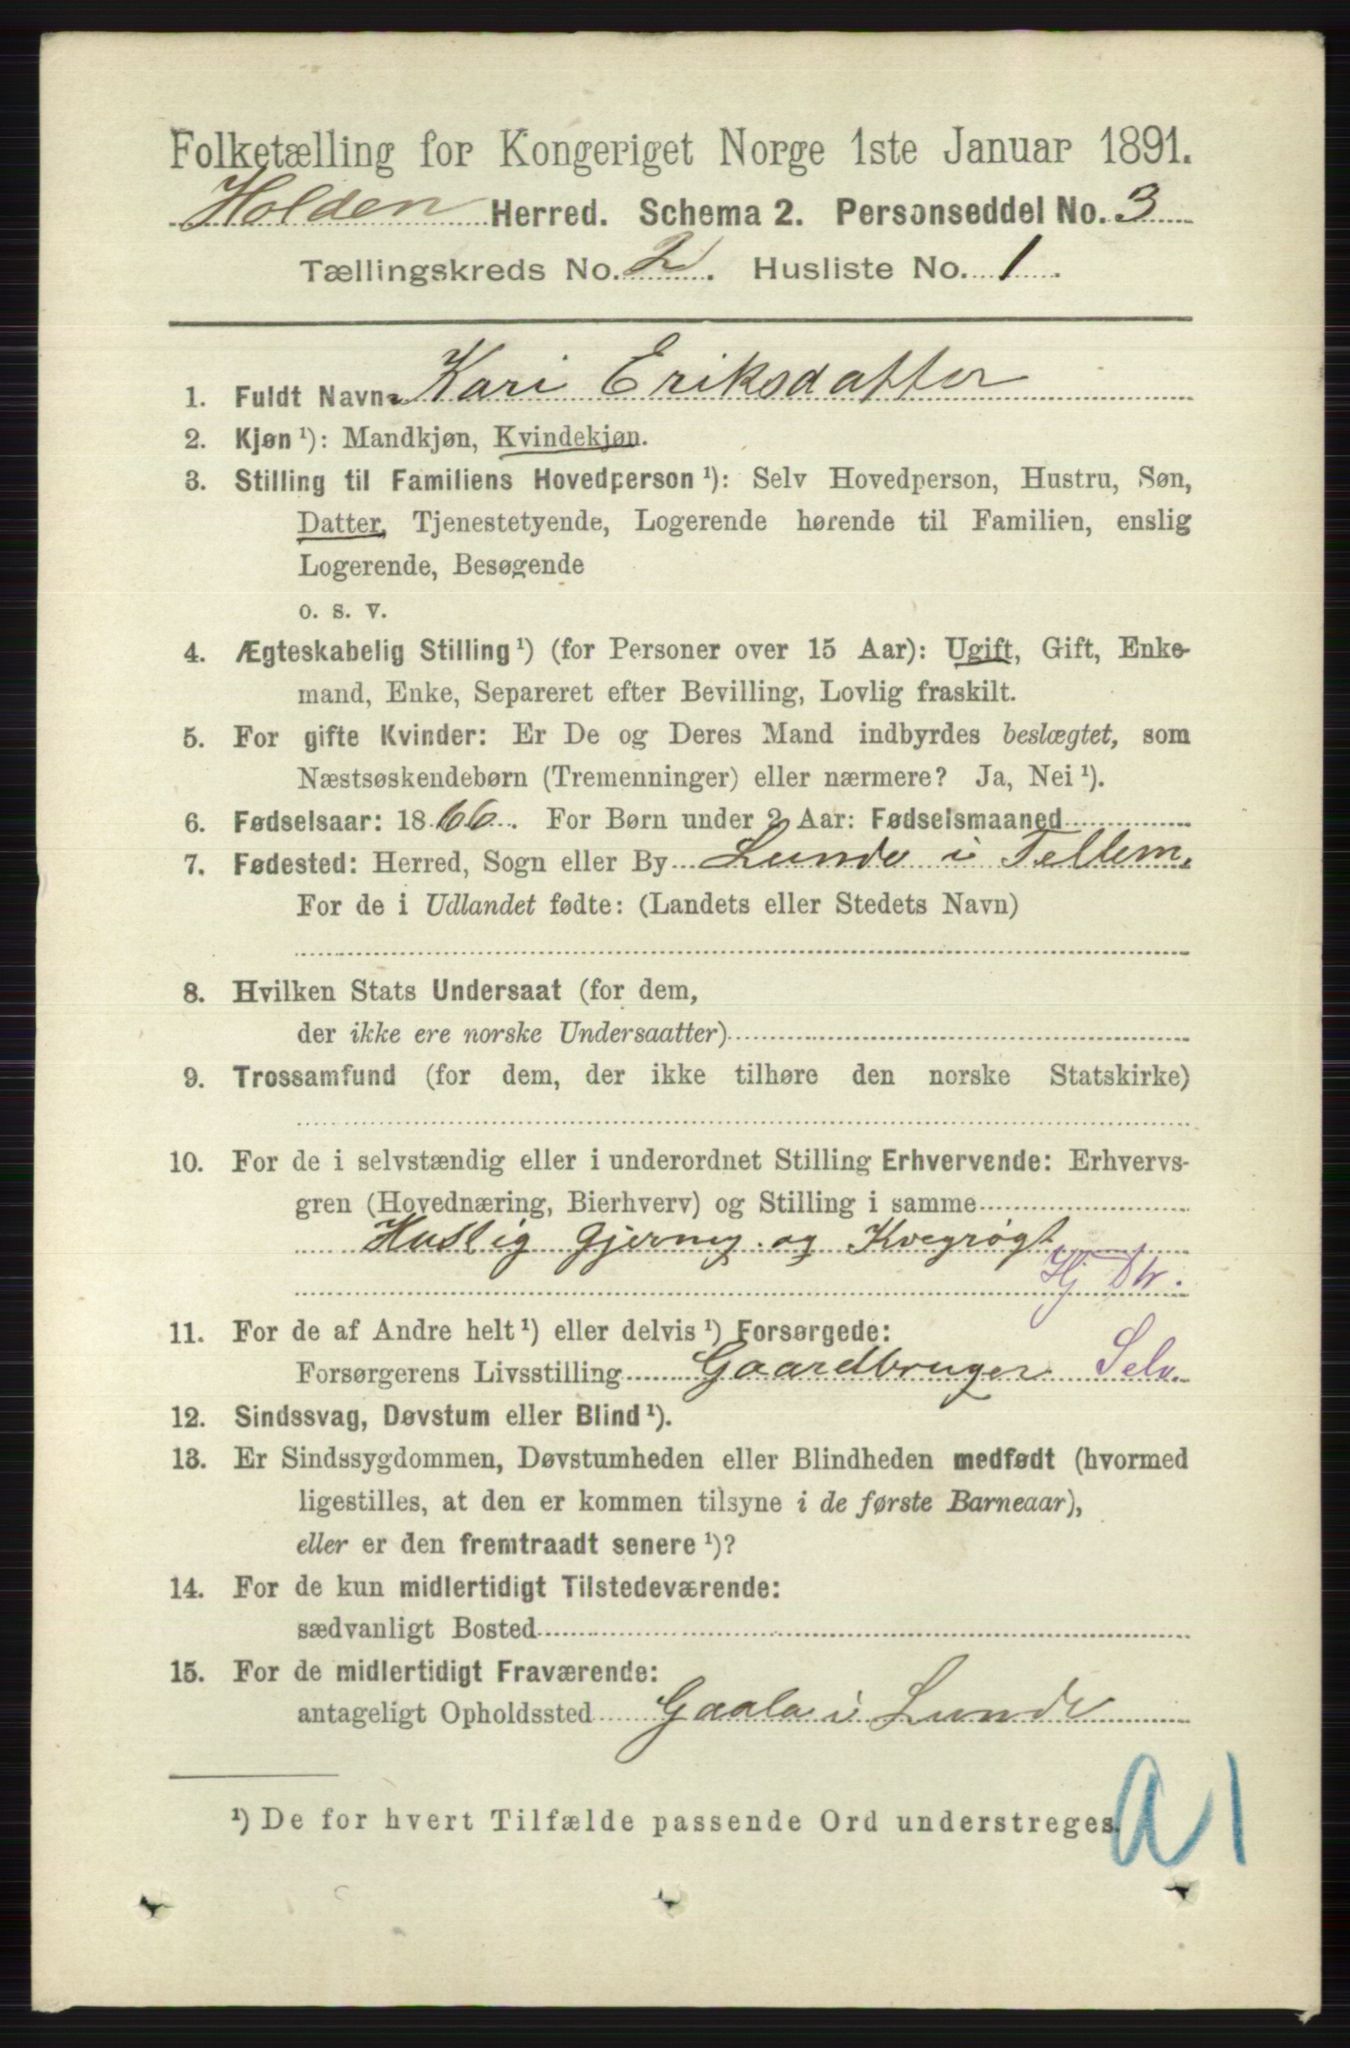 Folketælling for Kongeriget Norge 1ste Januar 1891.
Holden Herred. Schema 2. Personseddel No. 3
Tællingskreds No. 2. Husliste No. 1.
1. Fuldt Navn Kari Eriksdatter
2. Kjøn ¹): Mandkjøn, Kvindekjøn.
3. Stilling til Familiens Hovedperson ¹): Selv Hovedperson, Hustru, Søn,
Datter, Tjenestetyende, Logerende hørende til Familien, enslig
Logerende, Besøgende
o. s. v.
4. Ægteskabelig Stilling ¹) (for Personer over 15 Aar): Ugift, Gift, Enke-
mand, Enke, Separeret efter Bevilling, Lovlig fraskilt.
5. For gifte Kvinder: Er De og Deres Mand indbyrdes beslægtet, som
Næstsøskendebørn (Tremenninger) eller nærmere? Ja, Nei ¹).
6. Fødselsaar: 1866. For Børn under 2 Aar: Fødselsmaaned
7. Fødested: Herred, Sogn eller By Lunde i Tellem.
For de i Udlandet fødte: (Landets eller Stedets Navn)
8. Hvilken Stats Undersaat (for dem,
der ikke ere norske Undersaatter)
9. Trossamfund (for dem, der ikke tilhøre den norske Statskirke)
10. For de i selvstændig eller i underordnet Stilling Erhvervende: Erhvervs-
gren (Hovednæring, Bierhverv) og Stilling i samme
Huslig gjerning og Kvegrøgt
Hj Dtr.
11. For de af Andre helt ¹) eller delvis ¹) Forsørgede:
Forsørgerens Livsstilling Gaardbruger Selv.
12. Sindssvag, Døvstum eller Blind ¹).
13. Er Sindssygdommen, Døvstumheden eller Blindheden medfødt (hvormed
ligestilles, at den er kommen tilsyne i de første Barneaar),
eller er den fremtraadt senere ¹)?
14. For de kun midlertidigt Tilstedeværende:
sædvanligt Bosted
15. For de midlertidigt Fraværende:
antageligt Opholdssted Gaala i Lunde
¹) De for hvert Tilfælde passende Ord understreges.
a1